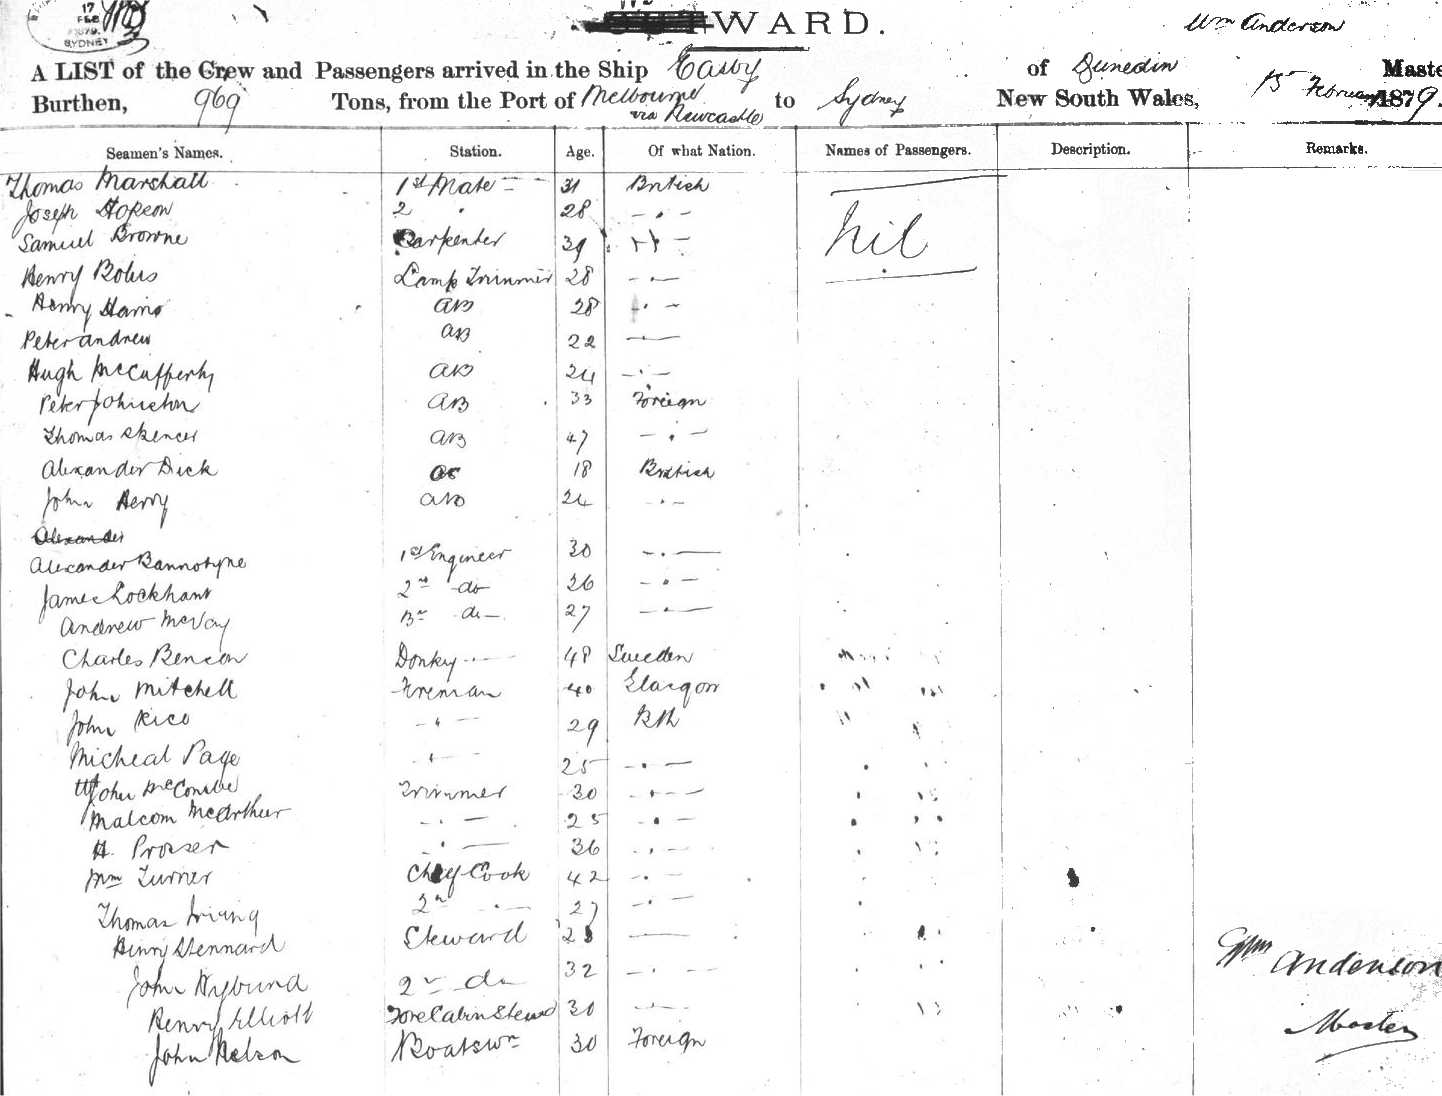 17
FEB
1879.
SYDNEY
WARD.
Wm Anderson
A LIST of the Crew and Passengers arrived in the Ship Easby of Dunedin Maste
Burthen, 969 Tons, from the Port of Melbourne via Newcastle to Sydney New South Wales, 15 February 1879.
Seamen's Names. Station. Age. Of what Nation. Names of Passengers. Description. Remarks.
Thomas Marshall 1st Mate 31 British
Joseph Hopson 2 " 28 — " — nil
Samuel Browne Carpenter 39 " —
Henry Bolus Lamp Trimmer 28 — " —
Henry Harris AB 28 " —
Peter Andrew AB 22 —
Hugh McCafferty AB 24 — " —
Peter Johnston AB 33 Foreign
Thomas Spencer AB 47 — " —
Alexander Dick OS 18 British
John Henry AB 24 — " —
Alexander
Alexander Bannotyne 1st Engineer 30 — " —
James Lockhart 2nd do 26 — " —
Andrew McVay 3rd do — 27 — " —
Charles Benson Donky — 48 Sweden
John Mitchell Fireman 40 Glasgow
John Rice — " — 29 Bth
Micheal Page — " — 25 — " —
John McCombe Trimmer 30 — " —
Malcom McArthur — " — 25 — " —
H. Prosser — " — 36 — " —
Wm Turner Chief Cook 42 — " —
Thomas Irving 2nd " — 27 — " —
Henry Stennard Steward 28 —
John Nyburnd 2nd do 32 — " —
Henry Elliott Fore Cabin Steward 30 — " —
John Nelson Boatswn 30 Foreign
Wm Anderson
Master